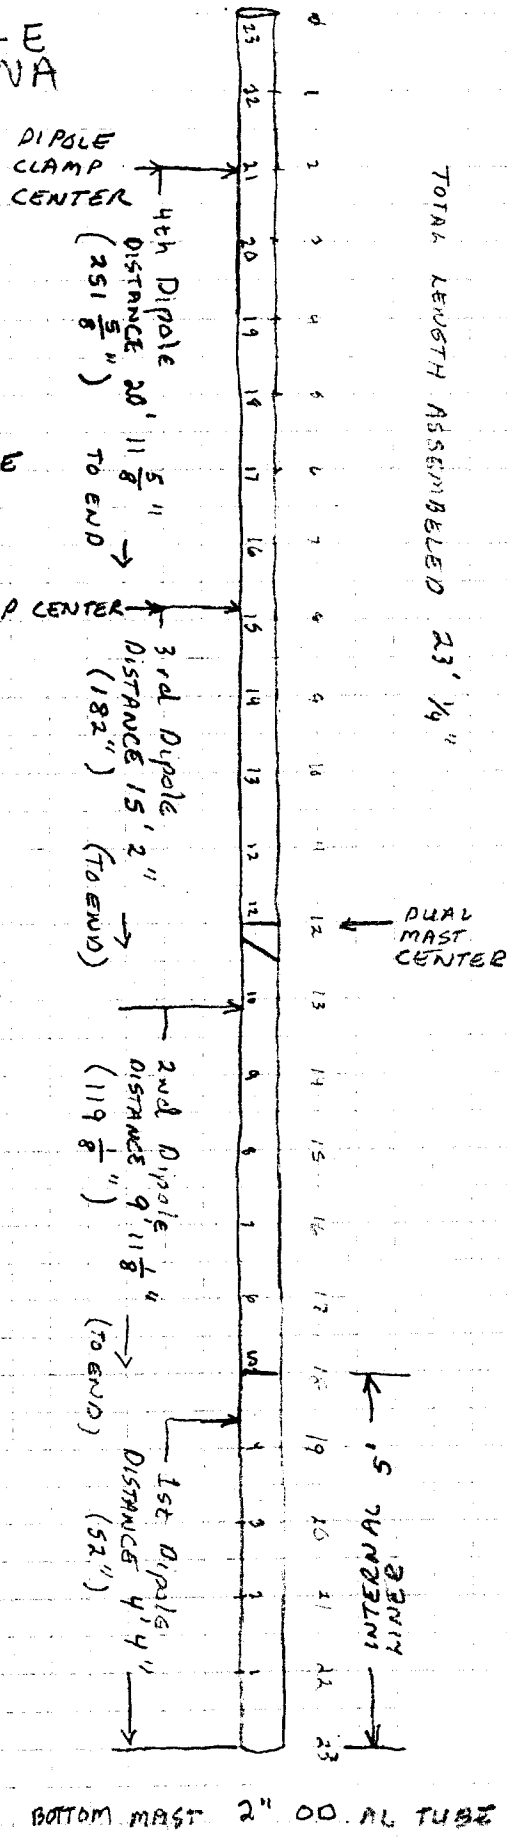 -E
NA
DIPOLE
CLAMP
CENTER
4th Dipole
DISTANCE 20' 11 5/8" TO END
(251 5/8")
E
P CENTER
3rd Dipole
DISTANCE 15' 2" (TO END)
(182")
2nd Dipole
DISTANCE 9' 11 1/8" (TO END)
(119 1/8")
1st Dipole
DISTANCE 4'4"
(52")
23
22
21
20
19
18
17
16
15
14
13
12
12
10
9
8
7
6
5
4
3
2
1
0
1
2
3
4
5
6
7
8
9
10
11
12
13
14
15
16
17
18
19
20
21
22
23
TOTAL LENGTH ASSEMBELED 23' 1/4"
DUAL
MAST
CENTER
INTERNAL 5'
LINER
BOTTOM MAST 2" OD. AL TUBE